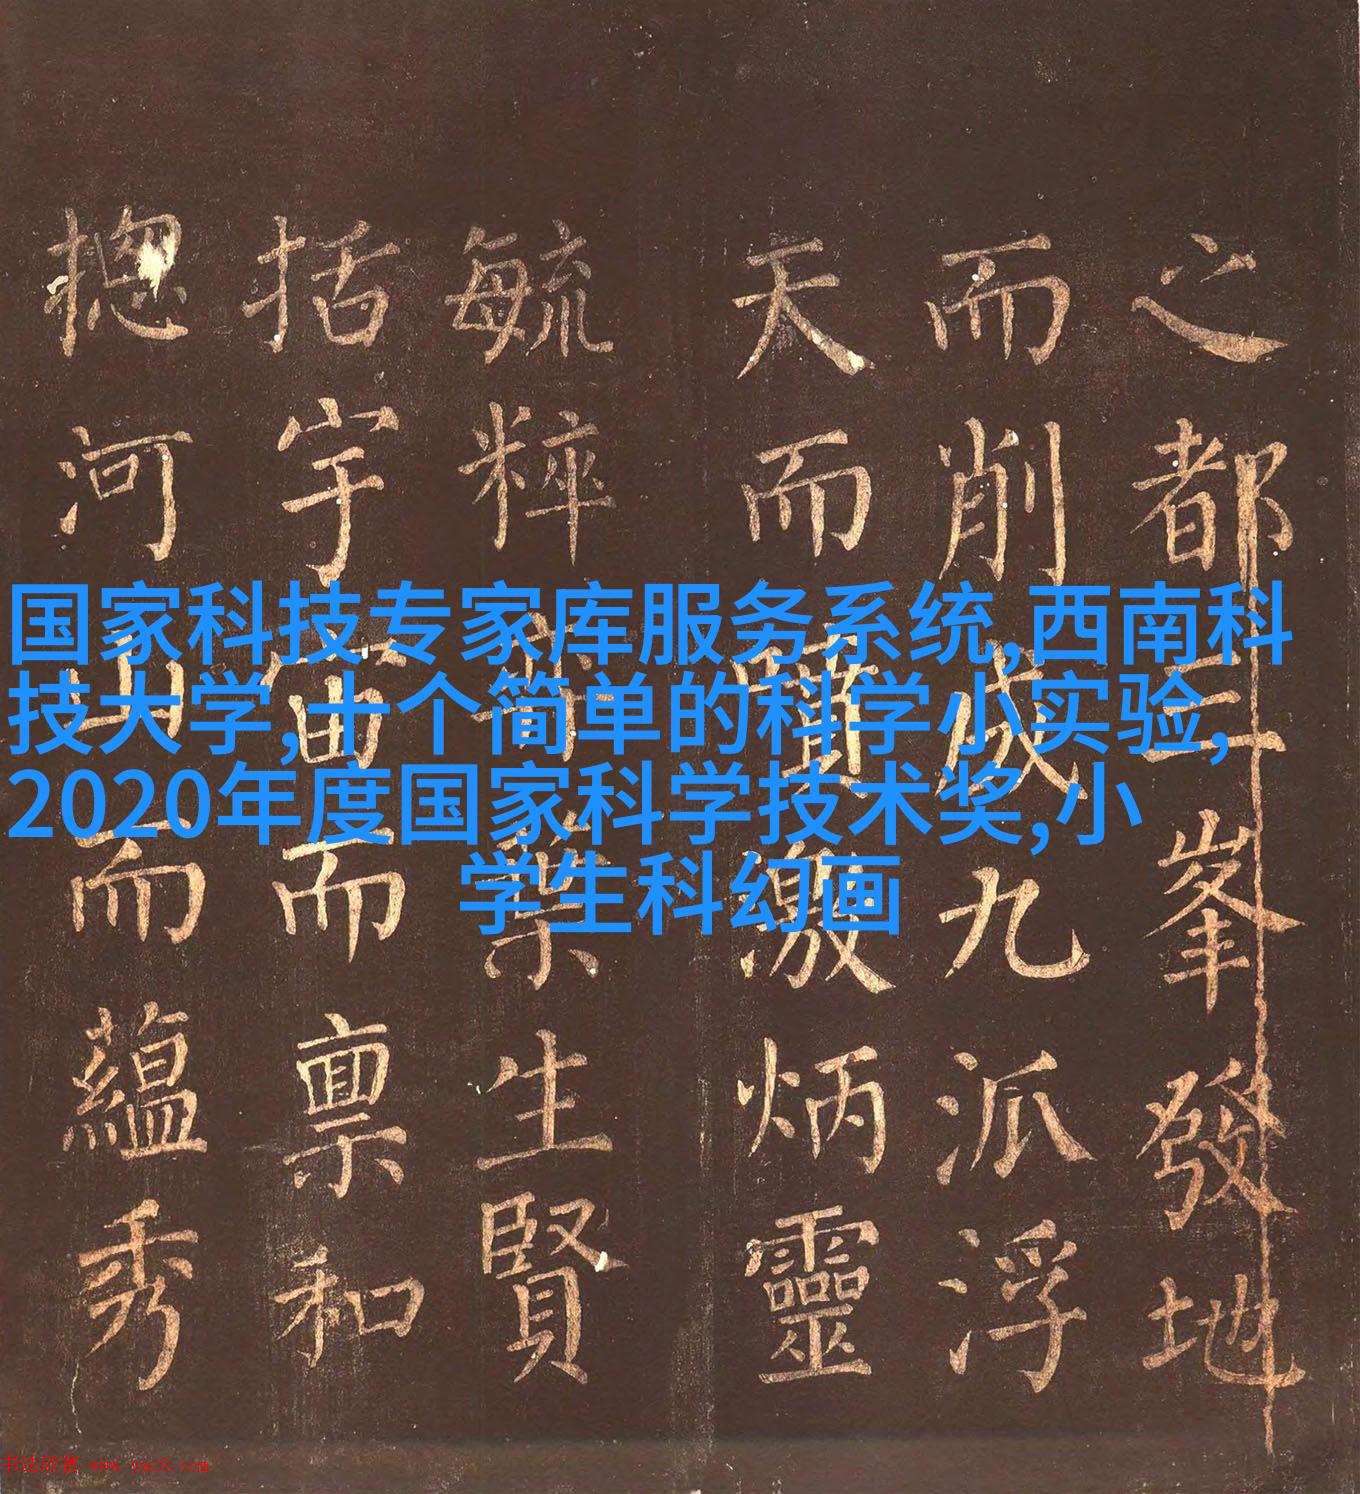 之都三峯發地
而削成九派浮
天而激炳靈
毓粹生賢
括宇宙而禀和
揔河山而蘊秀
国家科技专家库服务系统,西南科
技大学,十个简单的科学小实验,
2020年度国家科学技术奖,小
学生科幻画
书法欣赏 www.yac8.com